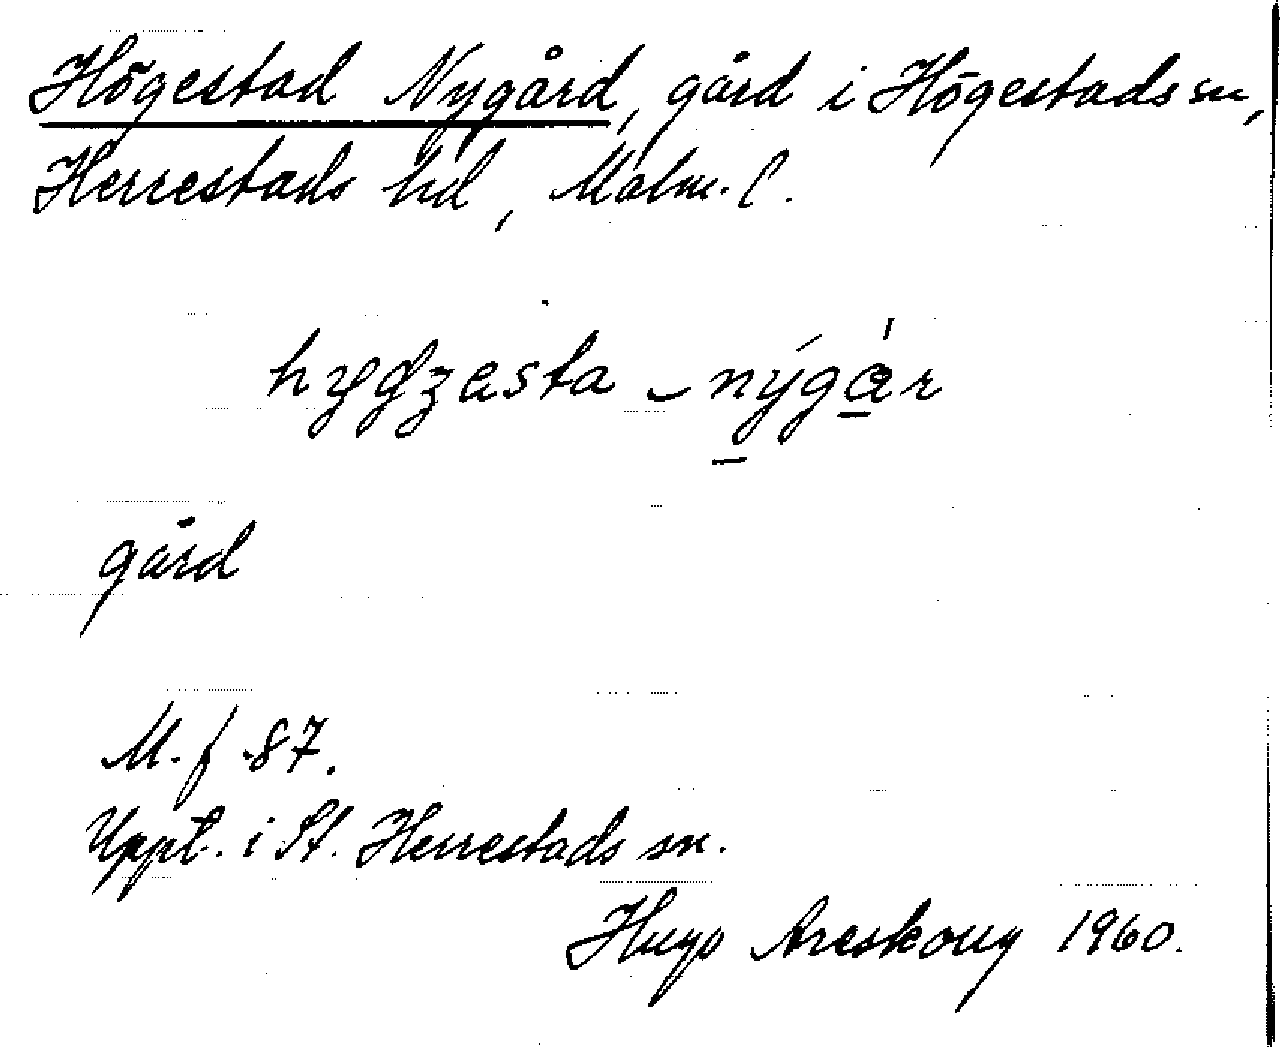 Högestad Nygård, gård i Högestads sn,
Herrestads hd, Malm. l.
nýgár
gård
M. f 87.
Uppt. i St. Herrestads sn.
Hugo Areskoug 1960.